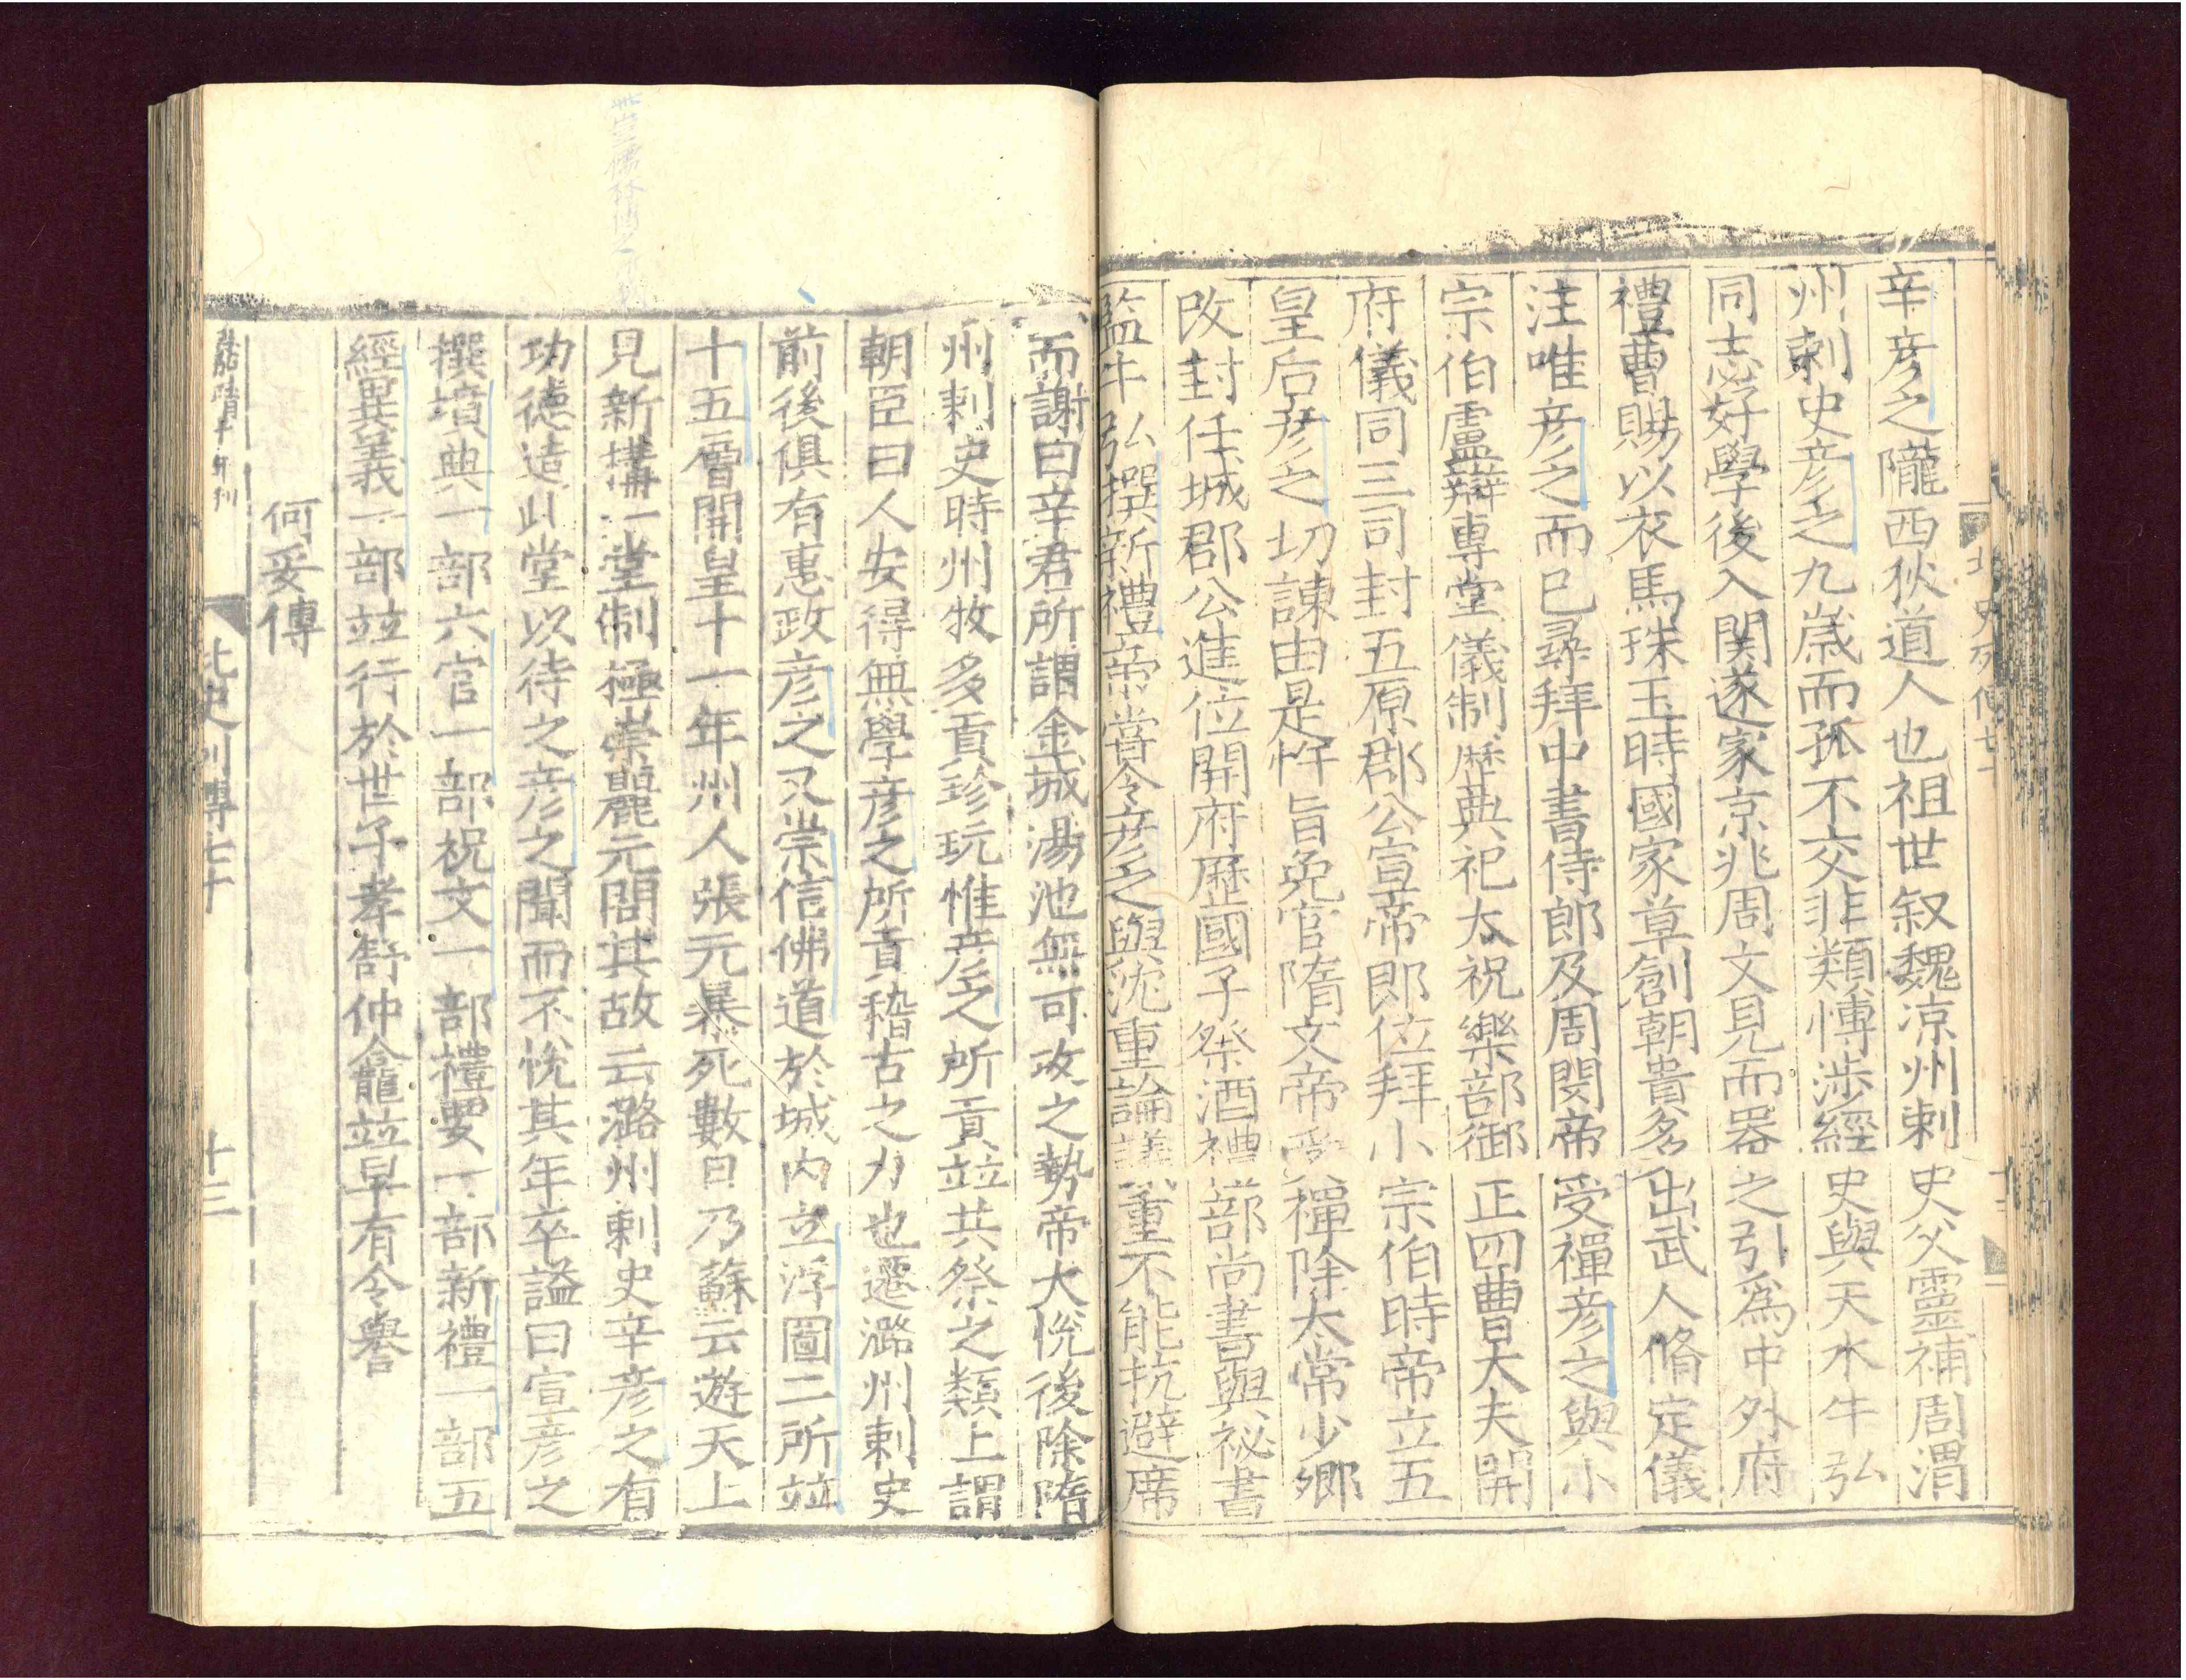 辛彦之隴西狄道人也祖世叙魏涼州刺史父靈補周渭
州刺史彦之九歳而孤不交非類慱涉經史與天水牛弘
同志好學後入関遂家京兆周文見而器之引爲中外府
禮曹賜以衣馬珠玉時國家草創朝貴多出武人脩定儀
注唯彦之而巳尋拜中書侍郎及周閔帝受禪彦之與小
宗伯盧辯専堂儀制歴典祀太祝樂部御正四曹大夫開
府儀同三司封五原郡公宣帝即位拜小宗伯時帝立五
皇后彦之切諫由是忤旨免官隋文帝受禪除太常少郷
改封任城郡公進位開府歴國子祭酒禮部尚書與祕書
監牛弘撰新禮帝嘗令彦之與沈重論議重不能抗避席
而謝曰辛君所謂金城湯池無可攻之勢帝大悅後除隋
州刺史時州牧多貢珍玩惟彦之所貢並共祭之類上謂
朝臣曰人安得無學彦之所貢稽古之力也遷潞州刺史
前後俱有惠政彦之又崇信佛道於城内立浮圖二所並
十五層開皇十一年州人張元暴死數日乃蘇云遊天上
見新構一堂制極崇麗元問其故云潞州刺史辛彦之有
功德造此堂以待之彦之聞而不悅其年卒謚曰宣彦之
撰墳典一部六官一部祝文一部禮要一部新禮一部五
經異義一部並行於世子孝舒仲龕並早有令譽
何妥傳
北史列傳七十
十三